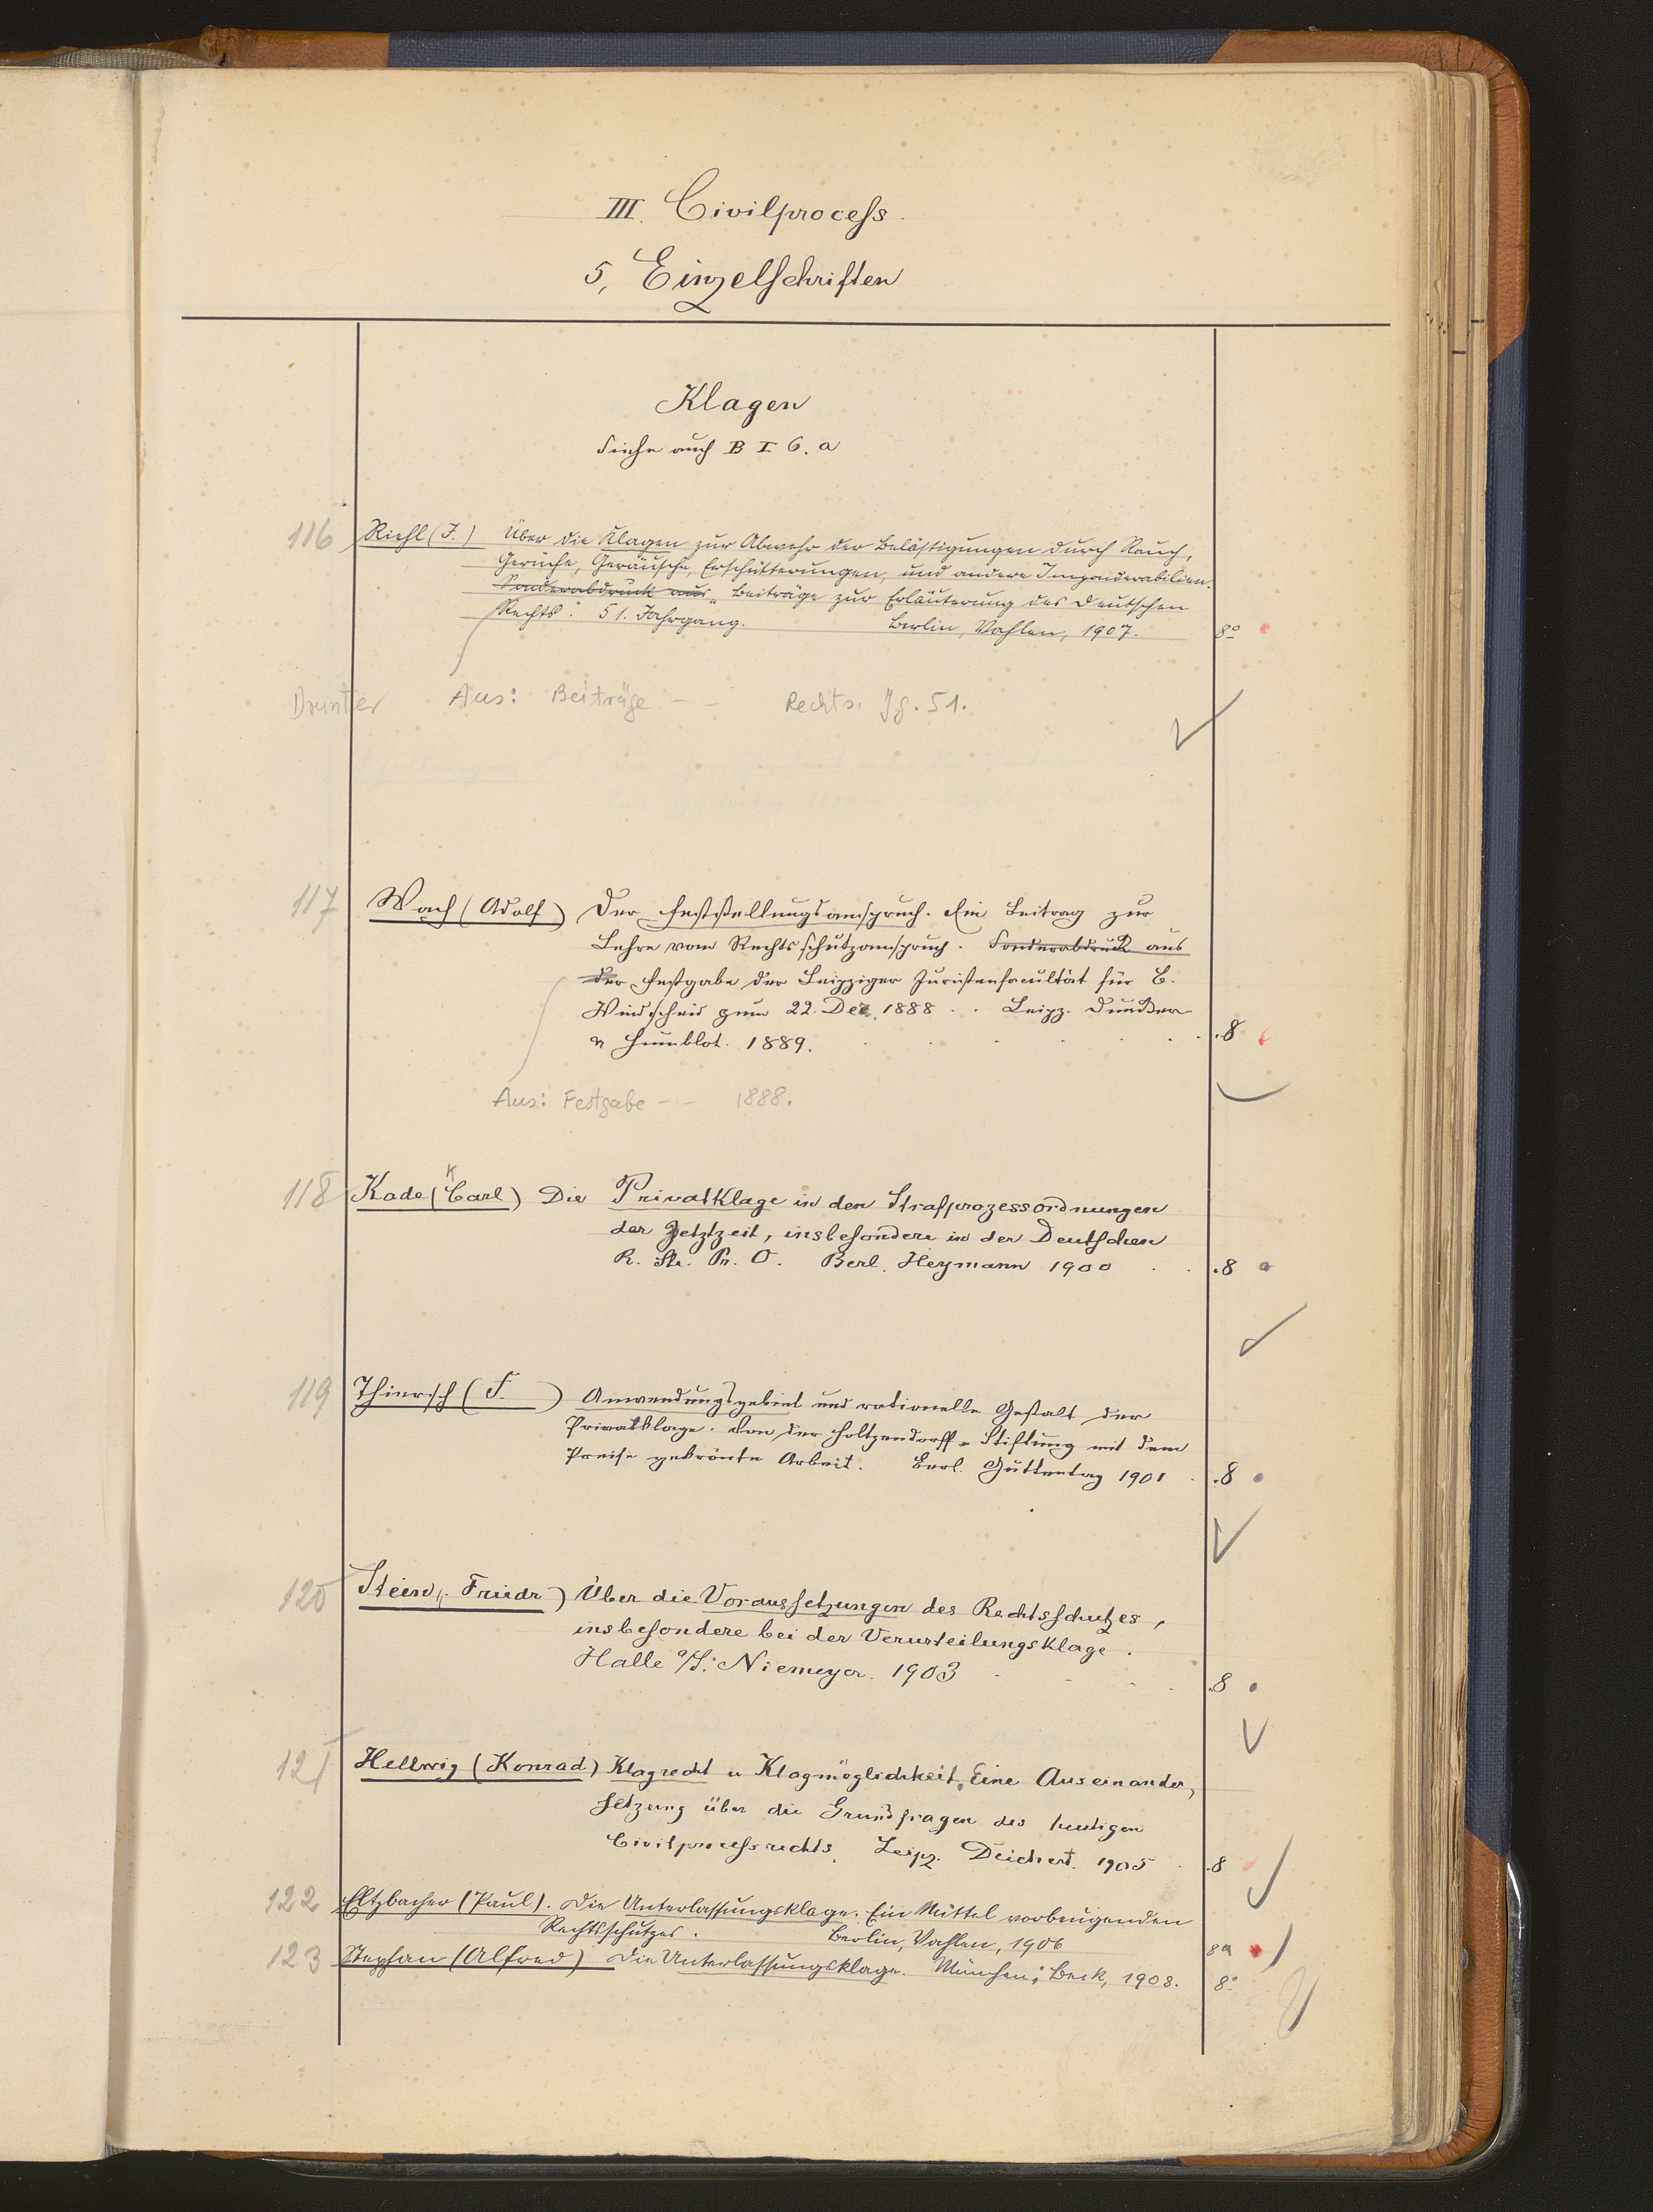 III. Civilprocess.
5, Einzelschriften
Klagen
Siehe auch B I 6. a
116 Riehl (J.) Über die Klagen zur Abwehr der Belästigungen durch Rauch,
Gerüche, Geräusche, Erschütterungen, und andere Imponderabilien.
Sonderabdruck aus „Beiträge zur Erläuterung des Deutschen
Rechts". 51. Jahrgang. Berlin, Vahlen, 1907. 8°
Drunter Aus: Beiträge - - Rechts. Jg. 51.
117 Wach (Adolf) Der Feststellungsanspruch. Ein Beitrag zur
Lehre vom Rechtsschutzanspruch. Sonderabdruck aus
der Festgabe der Leipziger Juristenfacultät für B.
Windscheid zum 22. Dez. 1888. Leipz. Duncker
u Humblot. 1889. 8
Aus: Festgabe - - 1888.
K
118 Kade (Carl) Die Privatklage in den Strafprozessordnungen
der Jetztzeit, insbesondere in der Deutschen
R. Str. Pr. O. Berl. Heymann 1900 8
119 Thiersch (F. ) Anwendungsgebiet und rationelle Gestalt der
Privatklage. Von der Holtzendorff-Stiftung mit dem
Preise gekrönte Arbeit. Berl. Guttentag 1901 8
120 Stein, Friedr) Über die Voraussetzungen des Rechtsschutzes,
insbesondere bei der Verurteilungsklage.
Halle a/S. Niemeyer. 1903 8
121 Hellwig (Konrad) Klagrecht u Klagmöglichkeit. Eine Auseinander,
setzung über die Grundfragen des heutigen
Civilprocessrechts. Leipz. Deichert. 1905 8
122 Eltzbacher (Paul). Die Unterlassungsklage. Ein Mittel vorbeugenden
Rechtsschutzes. Berlin, Vahlen, 1906 8°
123 Stephan (Alfred) Die Unterlassungsklage. München: Beck, 1908. 8°